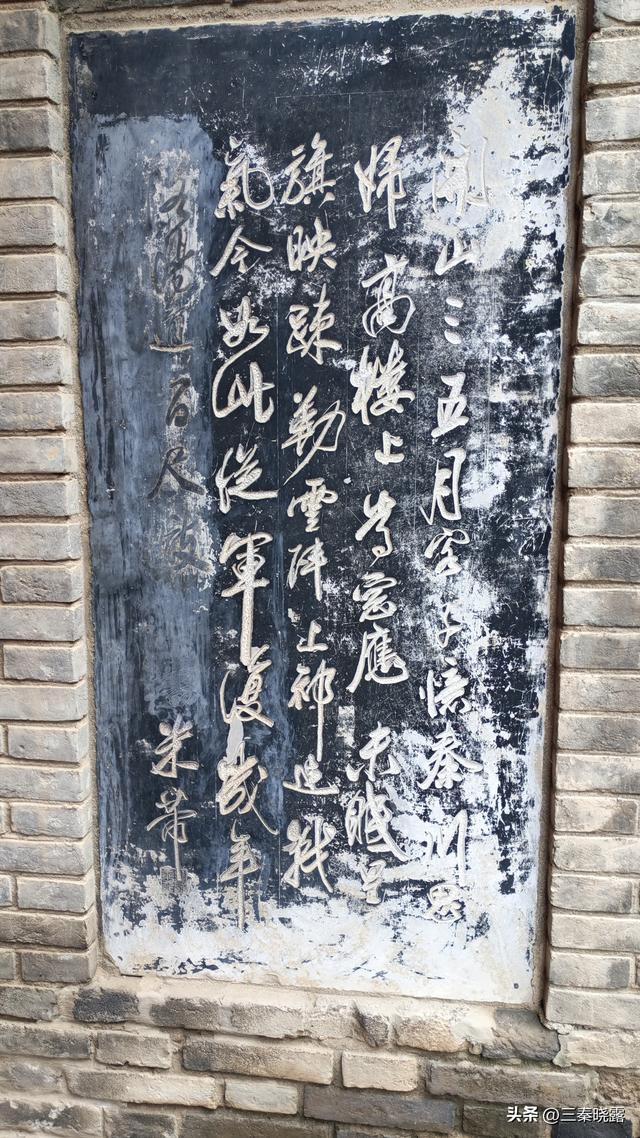 關山三五月客子憶秦川思
婦高樓上當窗應未眠星
旗映疎勒雲陣上祁連戰
氣今如此從軍復幾年
陽道百尺
米芾
头条 @三秦晓露